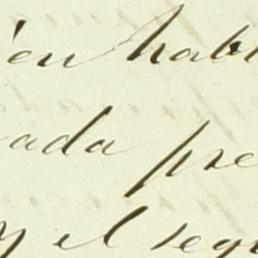 ien habl
ada pre
y el segu